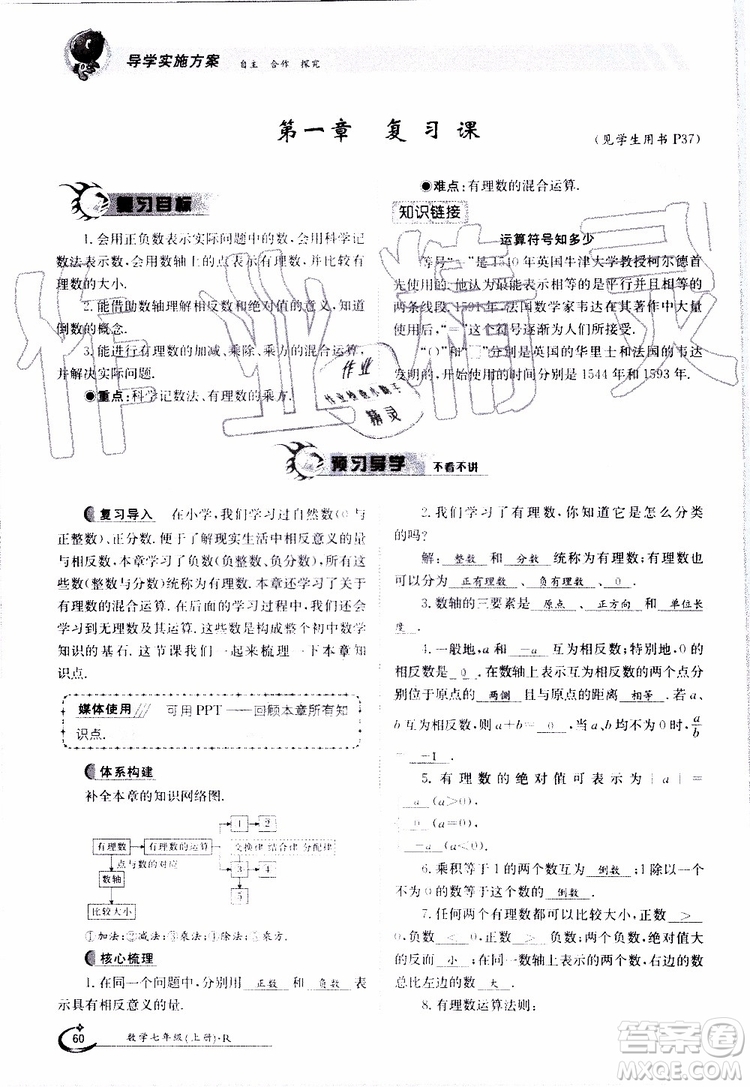 导学实施方案 自主 合作 探究
第一章 复习课
(见学生用书 P37)
复习目标
1. 会用正负数表示实际问题中的数,会用科学记
数法表示数,会用数轴上的点表示有理数,并比较有
理数的大小.
2. 能借助数轴理解相反数和绝对值的意义,知道
倒数的概念.
3. 能进行有理数的加减、乘除、乘方的混合运算,
并解决实际问题.
●重点:科学记数法、有理数的乘方.
●难点:有理数的混合运算.
知识链接
运算符号知多少
等号“=”是 1540 年英国牛津大学教授柯尔德首
先使用的. 他认为最能表示相等的是平行并且相等的
两条线段. 1591 年,法国数学家韦达在代数中大量使
用后,“=”这个符号逐渐为人们所接受.
“()”和“[]”分别是英国的华里士和法国的韦达
发明的,开始使用的时间分别是 1544 年和 1593 年.
预习导学 不看不讲
复习导入 在小学,我们学习过自然数(0 和
正整数)、正分数. 便于了解现实生活中相反意义的量
与相反数,本章学习了负数(负整数、负分数). 所有这
些数(整数与分数)统称为有理数. 本章还学习了关于
有理数的混合运算. 当然,到了高中以后,我们还会
学习到无理数及其运算. 这些数是构成整个初中数学
知识的基石. 这节课我们一起梳理一下本章知
识点.
媒体使用 可用 PPT——回顾本章所有知
识点.
体系构建
补全本章的知识网络图.
1 2
有理数 有理数的运算 交换律 结合律 分配律
点与数的对应
数轴 3 4
5
比较大小
①加法;②减法;③乘法;④除法;⑤乘方.
核心梳理
1. 在同一个问题中,分别用 正数 和 负数 表
示具有相反意义的量.
2. 我们学习了有理数,你知道它是怎么分类
的吗?
解: 整数 和 分数 统称为有理数;有理数还
可以分为 正有理数 、 负有理数 、 0 .
3. 数轴的三要素是 原点 、 正方向 和 单位长
度 .
4. 一般地,a 和 -a 互为相反数;特别地,0 的
相反数是 0 . 在数轴上表示互为相反数的两个点,分
别位于原点的 两侧 且与原点的距离 相等 . 若 a、
b 互为相反数,则 a+b= 0 ,当 a、b 均不为 0 时,a/b
= -1 .
5. 有理数的绝对值可表示为 |a| =
a (a>0),
0 (a=0),
-a (a<0).
6. 乘积等于 1 的两个数互为 倒数 ,任何一个
不为 0 的数等于这个数的 倒数 .
7. 任何两个有理数都可以比较大小,正数 >
0,负数 < 0,正数 > 负数;两个负数,绝对值大
的反而 小 ;数轴上的两个点表示的数,右边的数
总比左边的数 大 .
8. 有理数运算法则:
60 数学七年级(上册)·R
作业精灵
作业检查小助手
答案圈
MXQE.COM